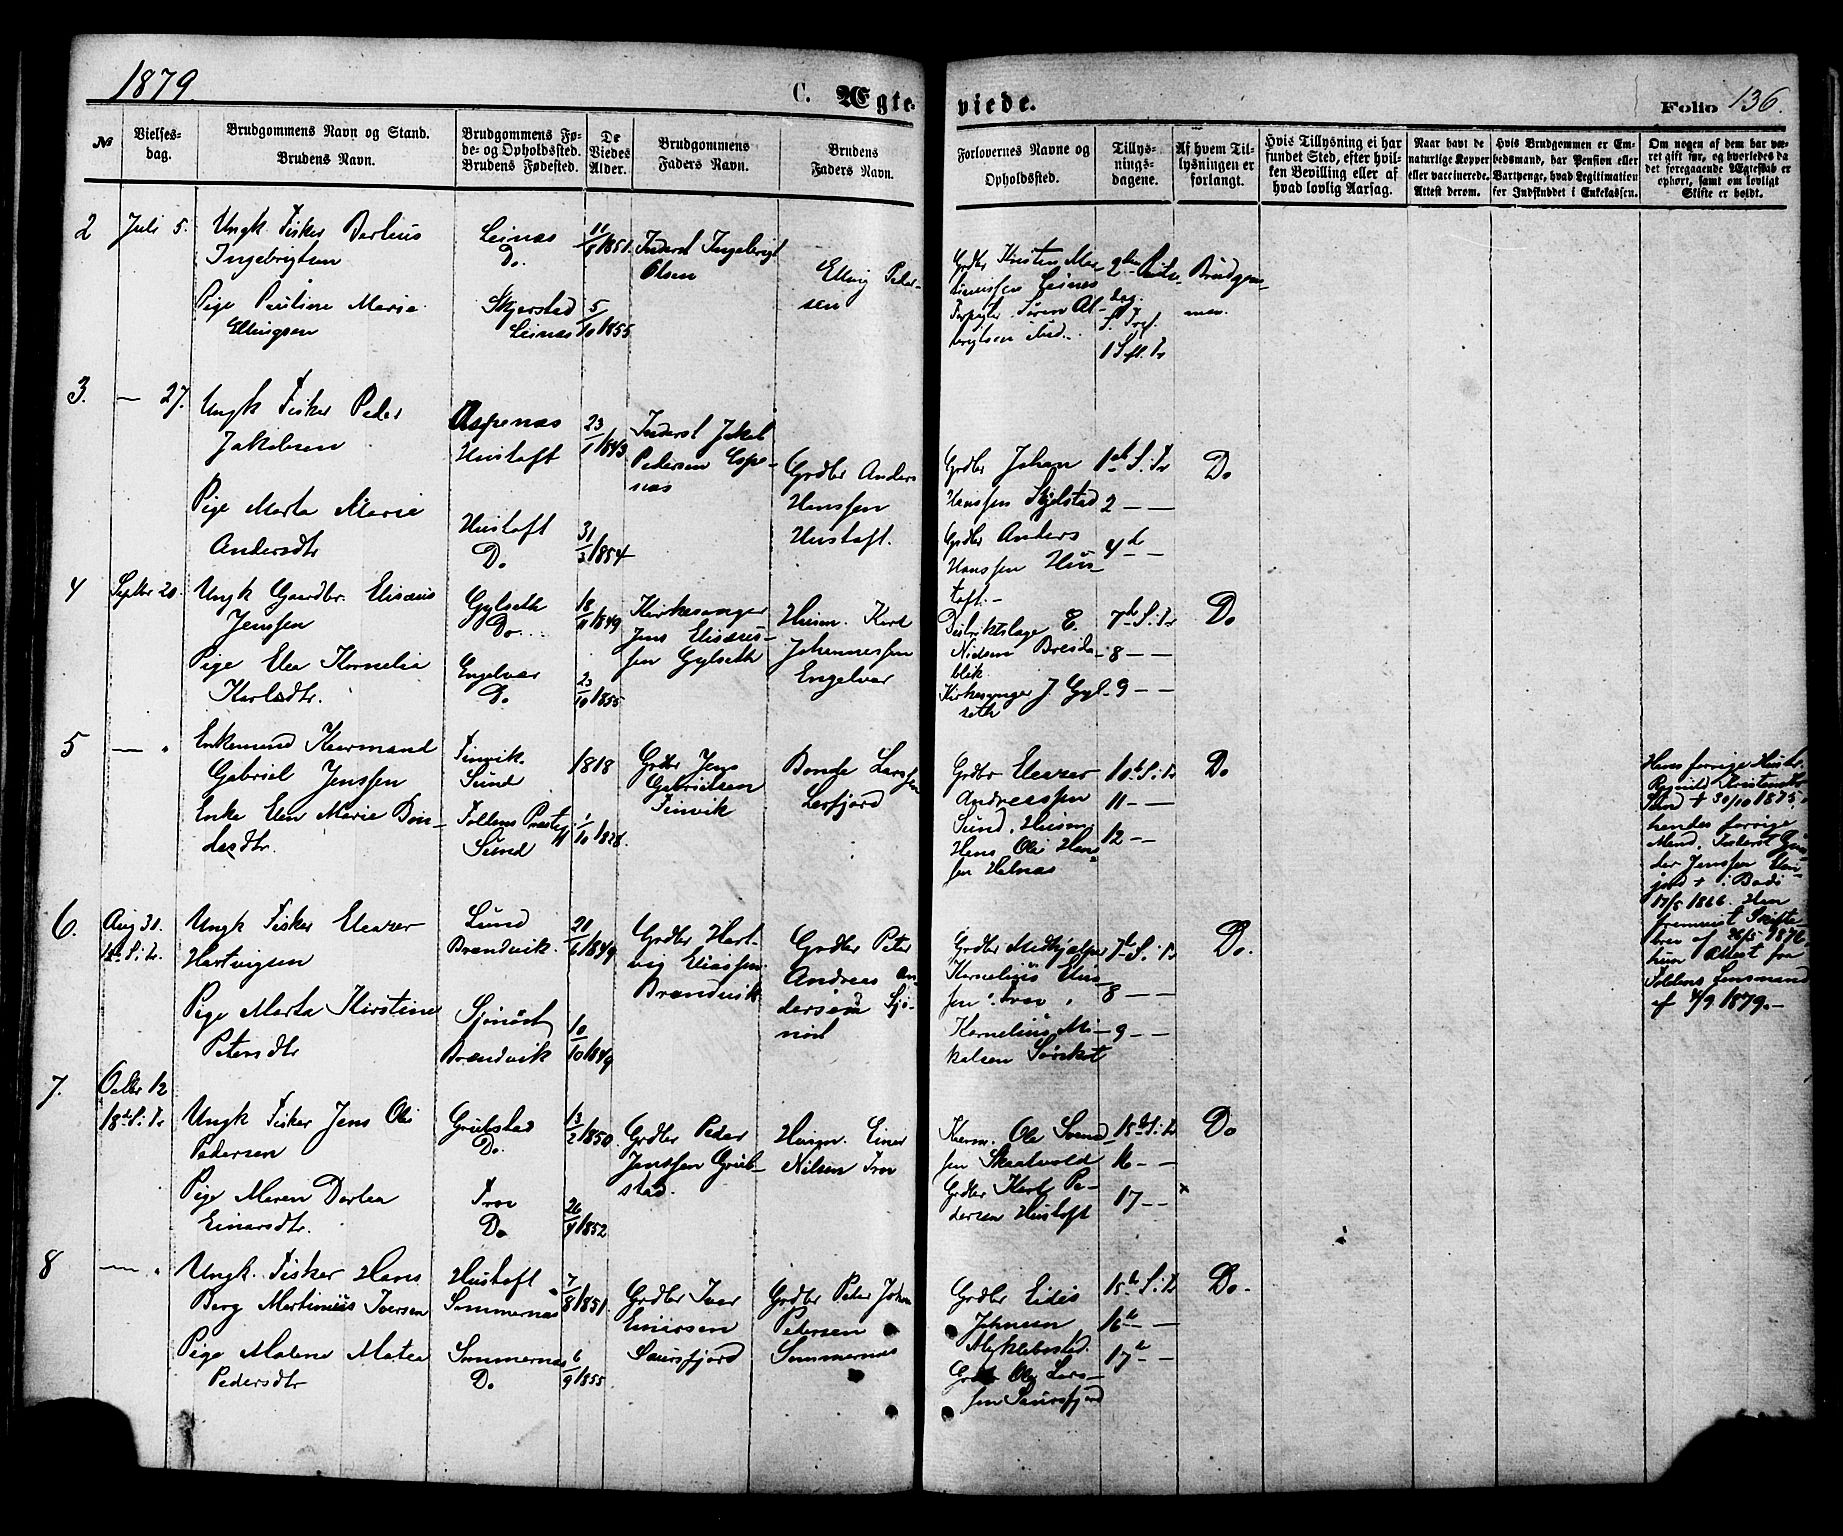 1879
C. Ægte-
viede.
Folio 136.
No
Vielses-
dag.
Brudgommens Navn og Stand.
Brudens Navn.
Brudgommens Fø-
de- og Opholdssted.
Brudens Fødested.
De
Viedes
Alder.
Brudgommens
Faders Navn.
Brudens
Faders Navn.
Forlovernes Navne og
Opholdssted.
Tillys-
nings-
dagene.
Af hvem Til-
lysningen er
forlangt.
Hvis Tillysning ei har
fundet Sted, efter hvil-
ken Bevilling eller af
hvad lovlig Aarsag.
Naar havt de
naturlige Kopper
eller vaccinerede.
Attest derom.
Hvis Brudgommen er Em-
bedsmand, har Pension eller
Vartpenge, hvad Legitimation
for Indskuddet i Enkekassen.
Om nogen af dem har væ-
ret gift før, og hvorledes da
det foregaaende Ægteskab er
ophørt, samt om lovligt
Skifte er holdt.
2
Juli 5.
Ungk. Fisker Dorleus
Ingebrigtsen
Pige Pauline Marie
Ellingsen
Leinas
Do.
Skjerstad
Leinas
1851.
5/10 1855
Inderst Ingebrigt
Olsen
Elling Peder-
sen
Grdbr Kristen Mar-
Leinas
Søren Al-
brigtsen ibid.
Brudgom-
men.
3.
— 27.
Ungk Fisker Peder
Jakobsen
Pige Marta Marie
Andersdtr
Aspenas
Hustoft
Hustoft
Do.
23/1 1843
31/3 1854
Inderst Jakob
Pedersen Espe-
nas
Grdbr Anders
Hanssen
Hustoft.
Grdbr Johan
Hanssen Skjelstad
Grdbr Anders
Hanssen Hus-
toft.
1ste S. i Tr
2 — —
4de —
Do
4
Septbr 20.
Ungk Gaardbr. Elisæus
Jenssen
Pige Elea Kornelia
Karlsdtr.
Gylseth
Do.
Engelvær
Do.
18/11 1849
23/10 1855
Kirkesanger
Jens Elisæus-
sen Gylseth
Husm. Karl
Johannessen
Engelvær
Distriktslæge E.
Nielsen Breida-
blik
Kirkesanger J Gyl-
seth
7de S. i Tr
8 — —
9 — —
Do
5
— "
Enkemand Kaarmand
Gabriel Jenssen
Enke Elen Marie Bon-
desdtr.
Finvik.
Sund
Foldens Præstegj
Sund
1818
1/10 1828.
Grdbr Jens
Gabrielsen
Finvik
Bonde Larssen
Lerfjord
Grdbr Eleazer
Andreassen
Sund, Husm.
Hans Ole Han-
sen Helnas
10de S. i Tr
11 — —
12 — —
Do
Hans forrige Hustr.
Ragnild Kristensdtr
Sund + 30/10 1875,
hendes forrige
Mand, Fisker
Jenssen
+ i Bodø
17/5 1866. Han
fremvist Skifte-
brev af 26/5 1876,
hun Attest fra
Foldens Lensmand
af 4/9 1879.—
6.
Aug 31.
12te S. i Tr.
Ungk Fisker Eleazer
Hartvigsen
Pige Marta Kirstine
Petersdtr
Sund
Brandvik.
Sjønøst
Brandvik
1849
10/10 1849
Grdbr Hart-
vig Eliassen
Brandvik
Grdbr Peter
Andreas An-
dersen Sjø-
nøst
Grdbr
Kornelius
sen
Kornelius Mi-
kalsen
7de S. i Tr
8 — —
9 — —
Do.
7.
Octbr 12
18de S. i Tr
Ungk Fisker Jens Oli
Pedersen
Pige Maren Dortea
Einarsdtr.
Grubstad
Do.
Troe
Do
13/2 1850.
26/4 1852
Grdbr Peder
Jenssen Grub-
stad.
Husm. Einer
Nilsen Troe
Kaarm. Ole Svend-
sen Skaalvold
Grdbr Karl Pe-
dersen Hustoft
15de S. i Tr
16 — —
17 — —
Do
8
— "
Ungk. Fisker Hans
Berg Martinius Iversen
Pige Malene Matea
Pedersdtr
Hustoft
Sommernas
Sommernas
Do.
7/8 1851.
6/9 1855
Grdbr Iver
Einersen
Saursfjord
Grdbr Peter Johan
Pedersen
Sommernas
Grdbr Eidis
Johnsen
Myklebostad.
Grdbr Ole Lars-
sen Saursfjord
15de S. i Tr
16de —
17de —
Do.